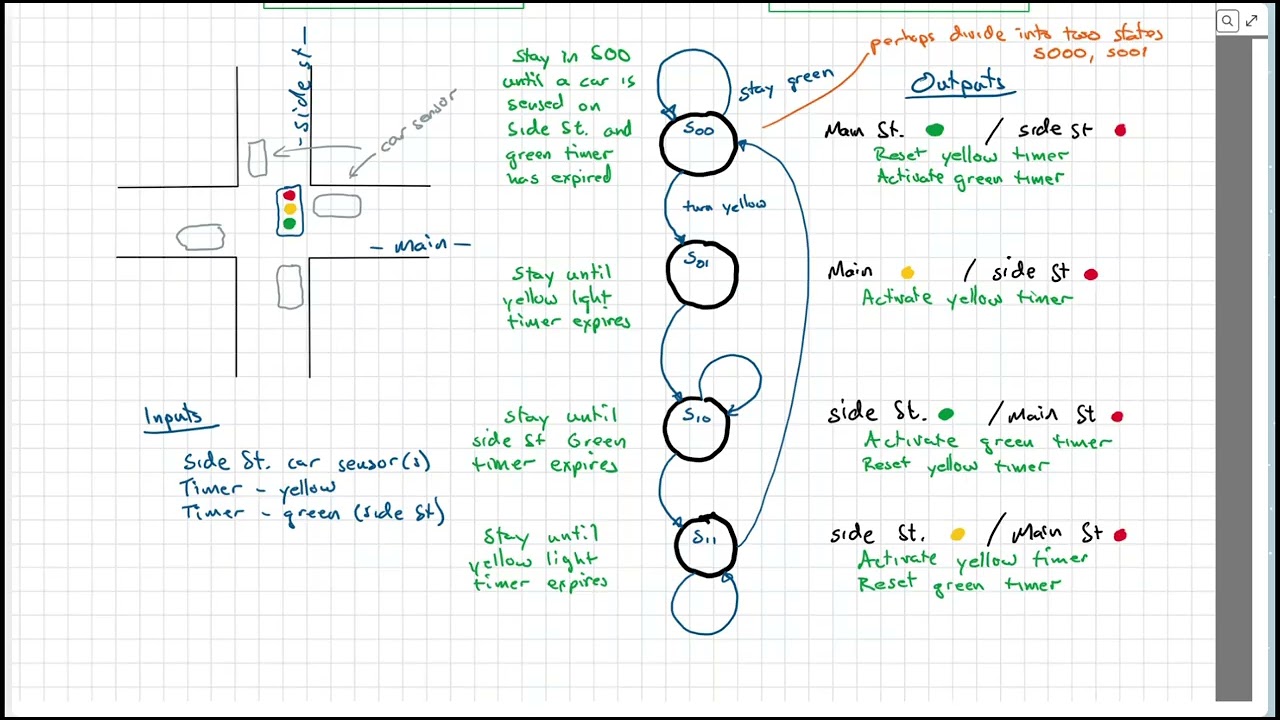 - side st -
car sensor
- Main -
Inputs
Side St. car sensor(s)
Timer - yellow
Timer - green (side St)
Stay in S00
until a car is
sensed on
side St. and
green timer
has expired
stay until
yellow light
timer expires
stay until
side St Green
timer expires
stay until
yellow light
timer expires
stay green
S00
turn yellow
S01
S10
S11
perhaps divide into two states
S000, S001
Outputs
Main St. / side st
Reset yellow timer
Activate green timer
Main / side st
Activate yellow timer
side St. / Main St
Activate green timer
Reset yellow timer
side St. / Main St
Activate yellow timer
Reset green timer